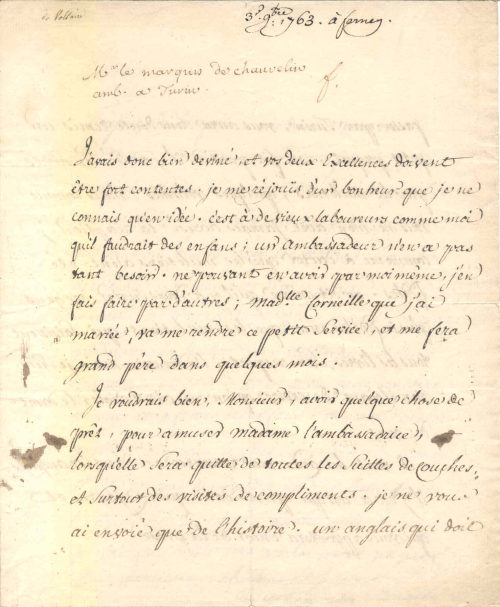 de Voltaire
3e. 9bre. 1763. à ferney.
Mr. le marquis de chauvelin
amb. a Turin.
f.
J'avais donc bien deviné, et vos deux Excellences doivent
être fort contentes. je me réjouïs d'un bonheur que je ne
connais qu'en idée. c'est à de vieux laboureurs comme moi
qu'il faudrait des enfans; un ambassadeur n'en a pas
tant besoin. ne pouvant en avoir par moi même, j'en
fais faire par d'autres; madlle. Corneille que j'ai
mariée, va me rendre ce petit service, et me fera
grand père dans quelques mois.
Je voudrais bien, Monsieur, avoir quelque chose de
prêt, pour amuser madame l'ambassadrice,
lorsqu'elle sera quitte de toutes les suittes de couches,
et surtout des visites de compliments. je ne vous
ai envoié que de l'histoire. un anglais qui doit